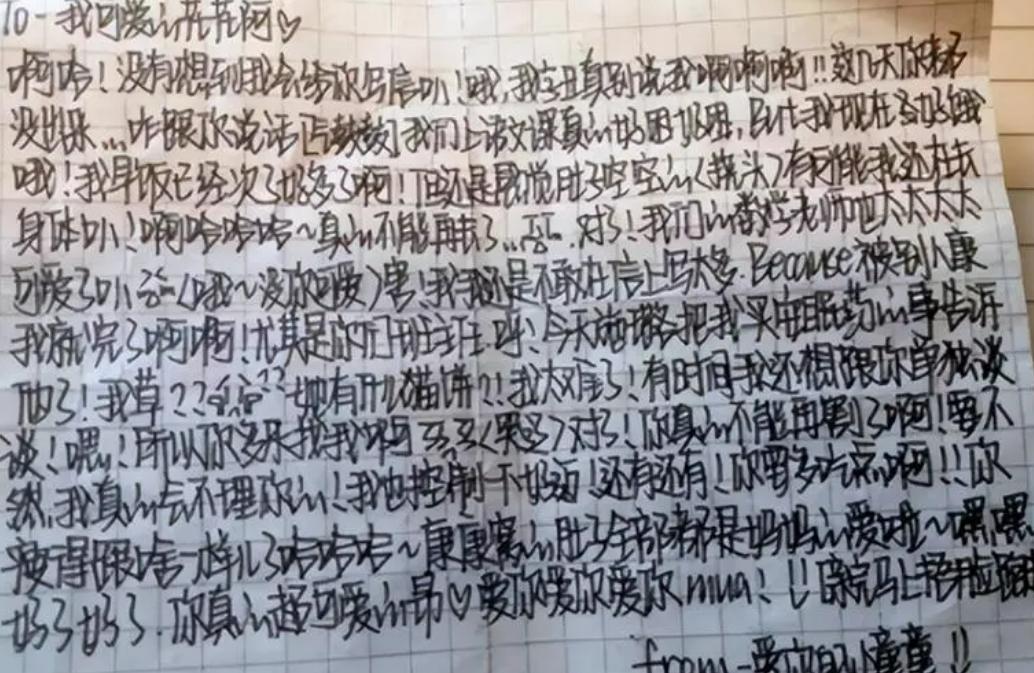 To-我可爱的花花阿♡
啊哈！没有想到我会给你写信叭！哦,我 真别说我啊啊啊!!这几天你都
没出来...咋跟你说话[气鼓鼓]我们上语文课真的好困好困,BUT我现在 好饿
哦！我早饭已经次了好多了啊！但还是感觉肚子空空的(挠头)有可能我还在长
身体叭！啊哈哈哈~真的不能再长了... 对了！我们的 老师也太太太太
可爱了叭 (哦~没你可爱)害！我还是不敢在信上写太多.Because被别人康
我就完了啊啊！尤其是你们班主任.哼！今天 把我买安眠药的事告诉
他了！我草?? ??她有什么猫饼?!我太难了！有时间我还想跟你单独谈
谈！嘿！所以你多来找我啊 对了！你真的不能再割了啊！要不
然,我真的会不理你的！我也控制一下好 ！还有还有！你要多吃 啊!!你
瘦得跟啥一样儿了哈哈哈~康康 的肚子全部都是妈妈的爱啦~嘿嘿
好了好了.你真的超可爱的昂♡爱你爱你爱你mua！!! 马上
from-爱你的小童童!!